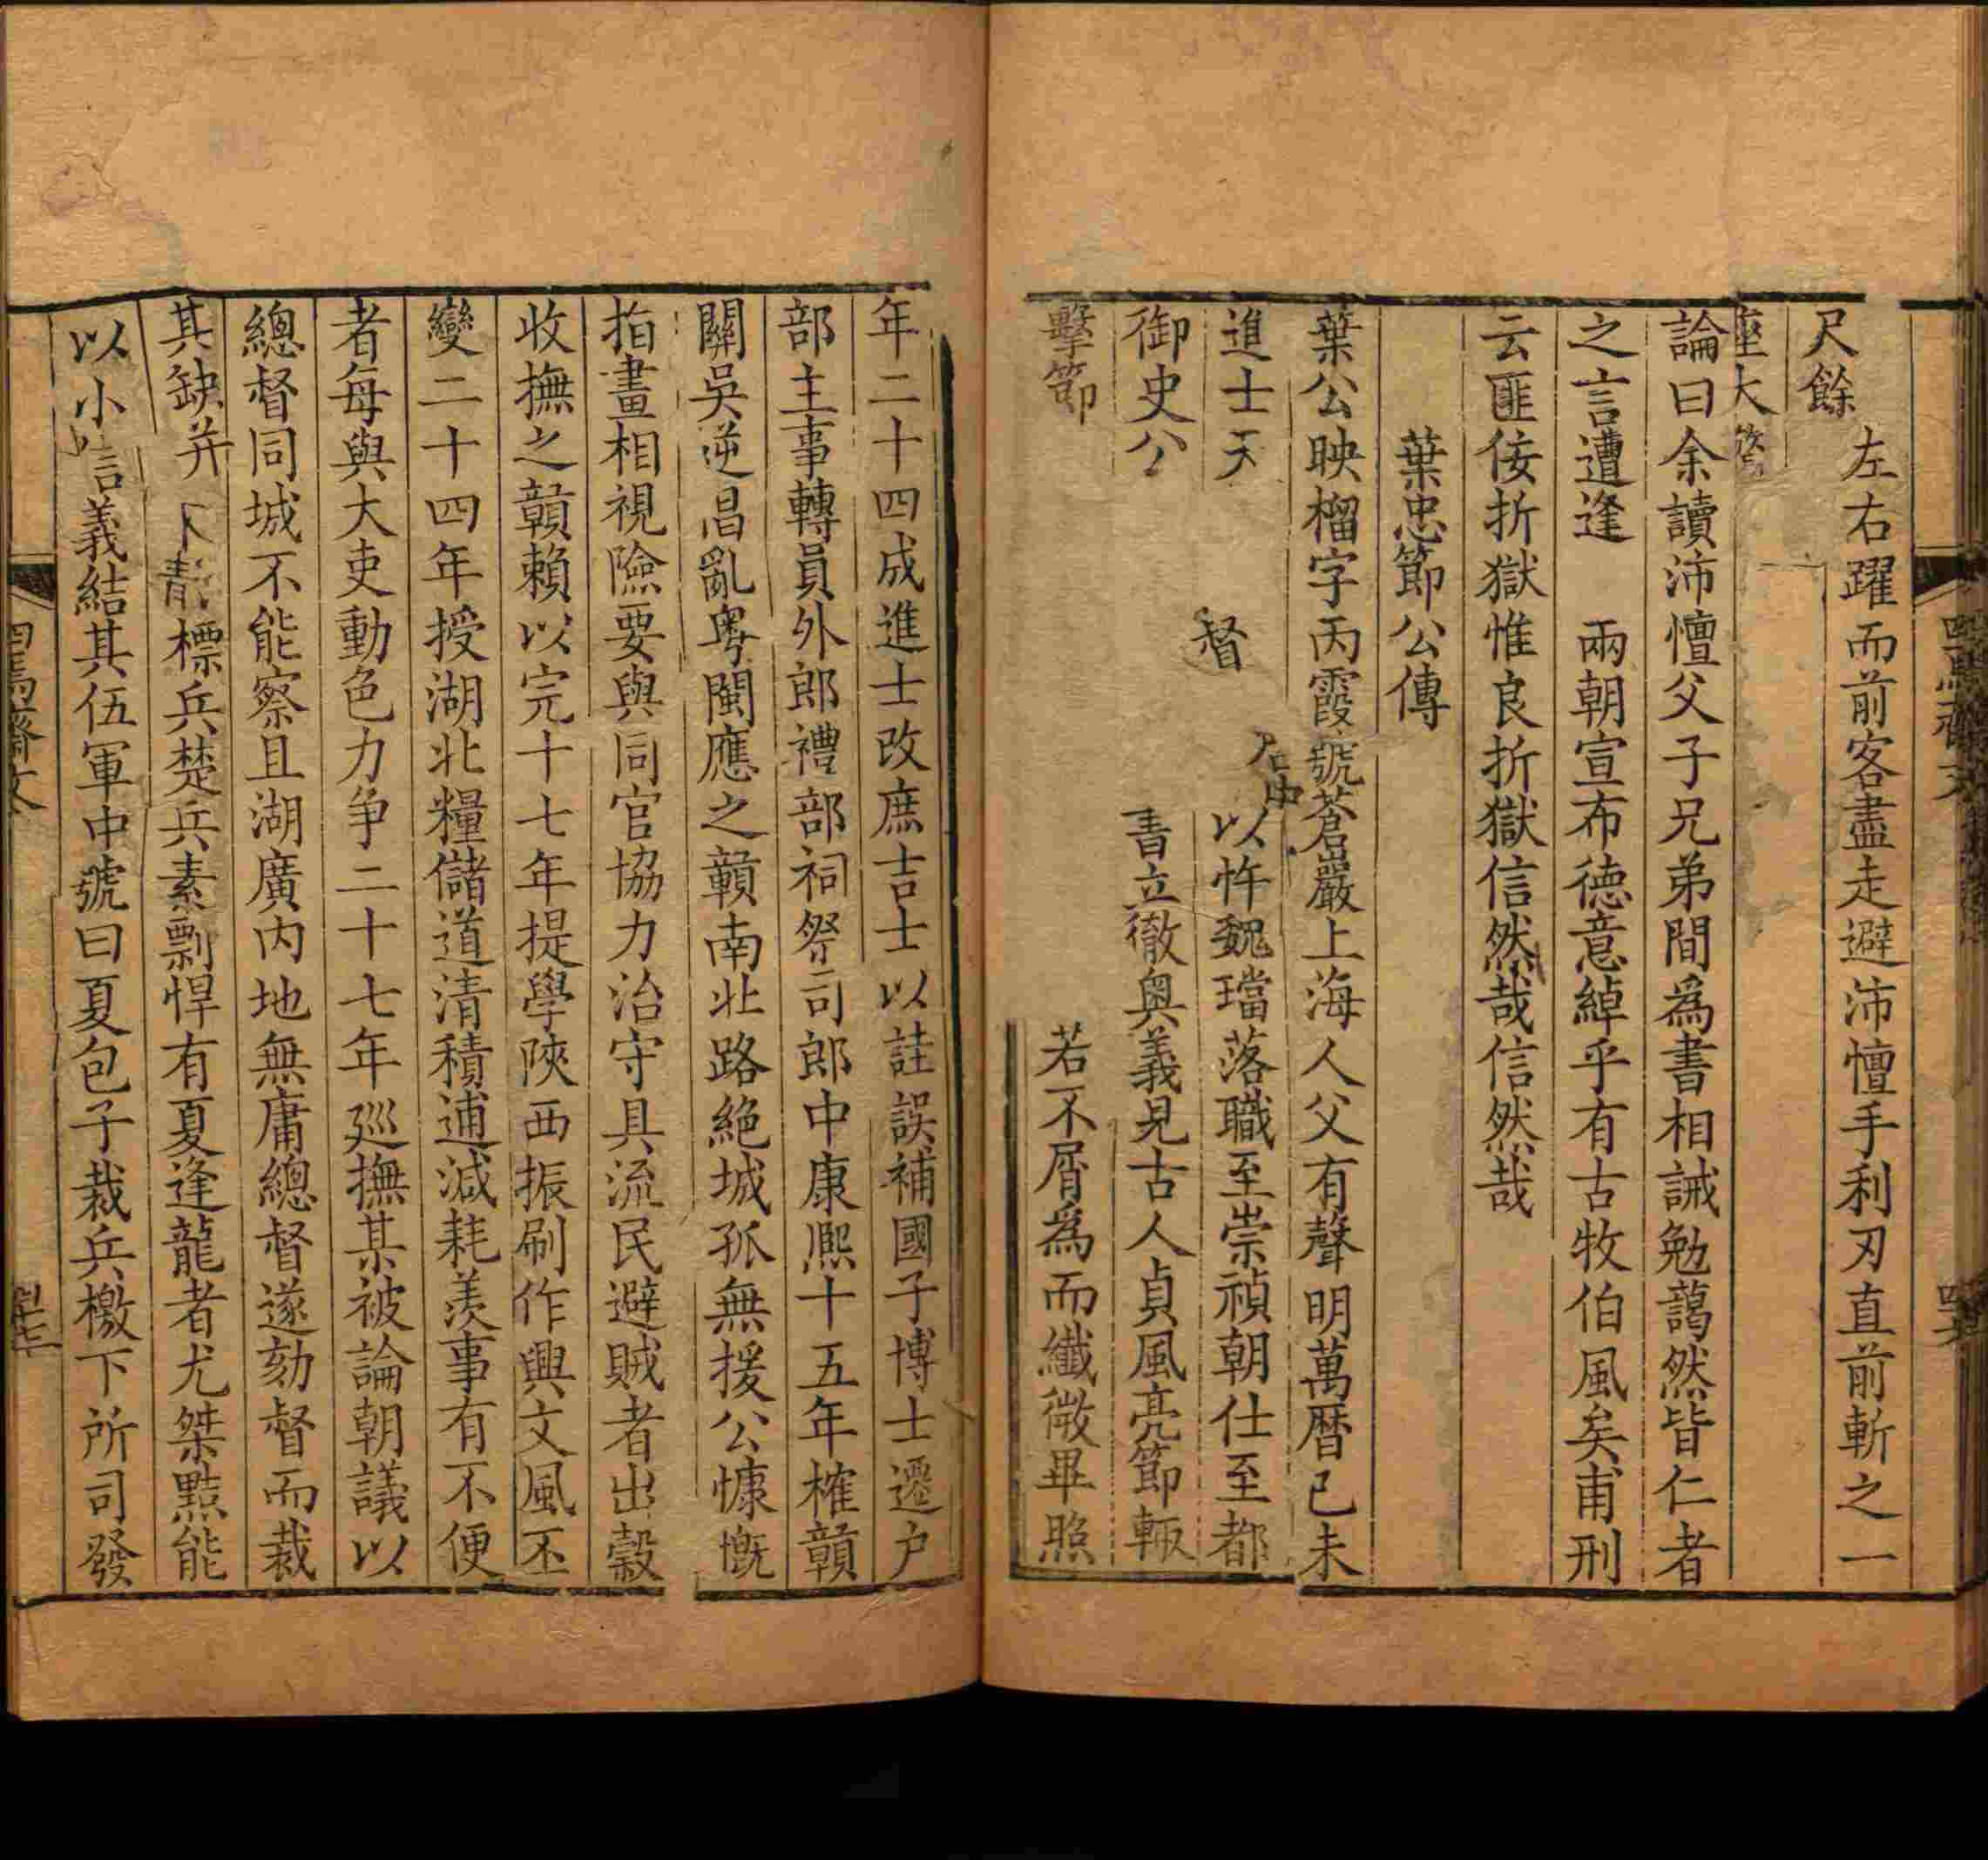 尺餘左右躍而前客盡走避沛檀手利刃直前斬之一
座大
論曰余讀沛檀父子兄弟間為書相誡勉藹然皆仁者
之言遭逢 兩朝宣布德意綽乎有古牧伯風矣甫刑
云匪佞折獄惟良折獄信然哉信然哉
葉忠節公傳
葉公映榴字丙霞號蒼巖上海人父有聲明萬曆己未
進士天 督 以忤魏璫落職至崇禎朝仕至都
御史公 書立徹奧義見古人貞風亮節輒
擊節 若不屑為而纖微畢照
年二十四成進士改庶吉士以詿誤補國子博士遷户
部主事轉員外郎禮部祠祭司郎中康熙十五年榷贛
關吳逆昌亂粵閩應之贛南北路絶城孤無援公慷慨
指畫相視險要與同官協力治守具流民避賊者出穀
收撫之贛賴以完十七年提學陝西振刷作興文風丕
變二十四年授湖北糧儲道清積逋減耗羨事有不便
者每與大吏動色力争二十七年巡撫某被論朝議以
總督同城不能察且湖廣内地無庸總督遂劾督而裁
其缺并 標兵楚兵素剽悍有夏逢龍者尤桀黠能
以小 義結其伍軍中號曰夏包子裁兵檄下所司發